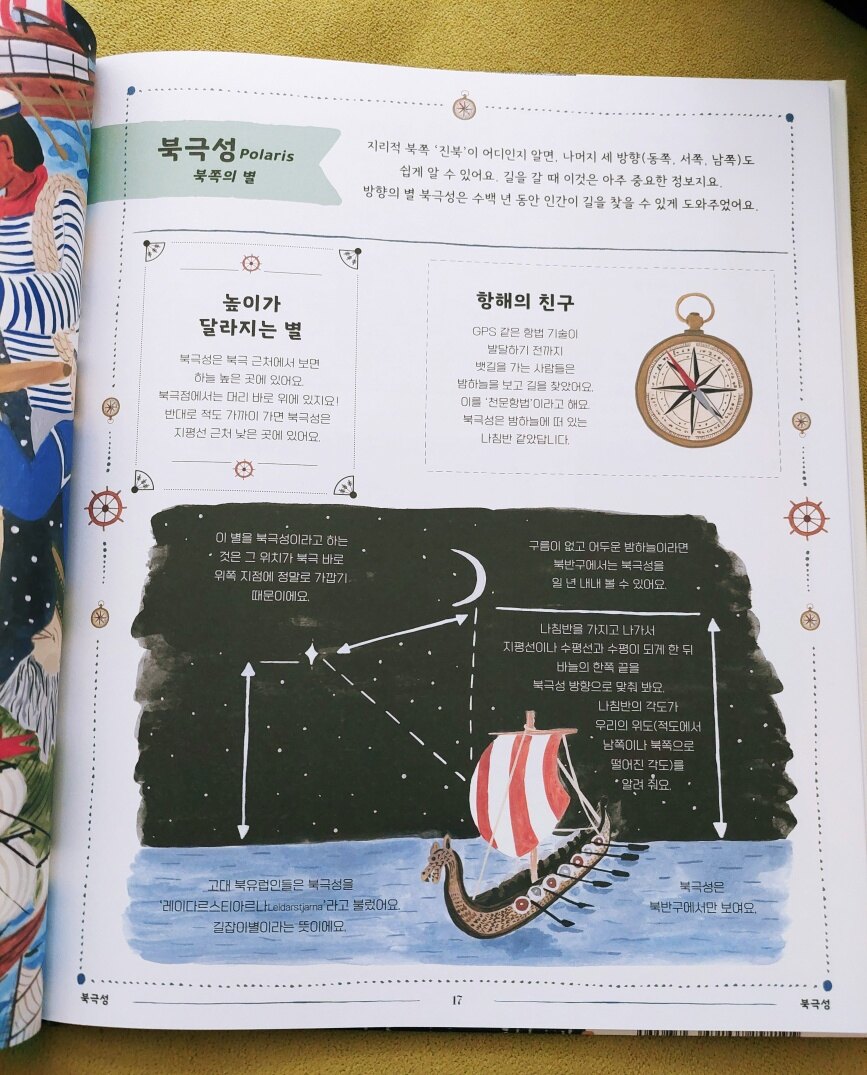 북극성 Polaris
북쪽의 별
지리적 북쪽 '진북'이 어디인지 알면, 나머지 세 방향(동쪽, 서쪽, 남쪽)도
쉽게 알 수 있어요. 길을 갈 때 이것은 아주 중요한 정보지요.
방향의 별 북극성은 수백 년 동안 인간이 길을 찾을 수 있게 도와주었어요.
높이가
달라지는 별
북극성은 북극 근처에서 보면
하늘 높은 곳에 있어요.
북극점에서는 머리 바로 위에 있지요!
반대로 적도 가까이 가면 북극성은
지평선 근처 낮은 곳에 있어요.
항해의 친구
GPS 같은 항법 기술이
발달하기 전까지
뱃길을 가는 사람들은
밤하늘을 보고 길을 찾았어요.
이를 '천문항법'이라고 해요.
북극성은 밤하늘에 떠 있는
나침반 같았답니다.
이 별을 북극성이라고 하는
것은 그 위치가 북극 바로
위쪽 지점에 정말로 가깝기
때문이에요.
구름이 없고 어두운 밤하늘이라면
북반구에서는 북극성을
일 년 내내 볼 수 있어요.
나침반을 가지고 나가서
지평선이나 수평선과 수평이 되게 한 뒤
바늘의 한쪽 끝을
북극성 방향으로 맞춰 봐요.
나침반의 각도가
우리의 위도(적도에서
남쪽이나 북쪽으로
떨어진 각도)를
알려 줘요.
고대 북유럽인들은 북극성을
'레이다르스티아르나Leidarstjarna'라고 불렀어요.
길잡이별이라는 뜻이에요.
북극성은
북반구에서만 보여요.
북극성
17
북극성